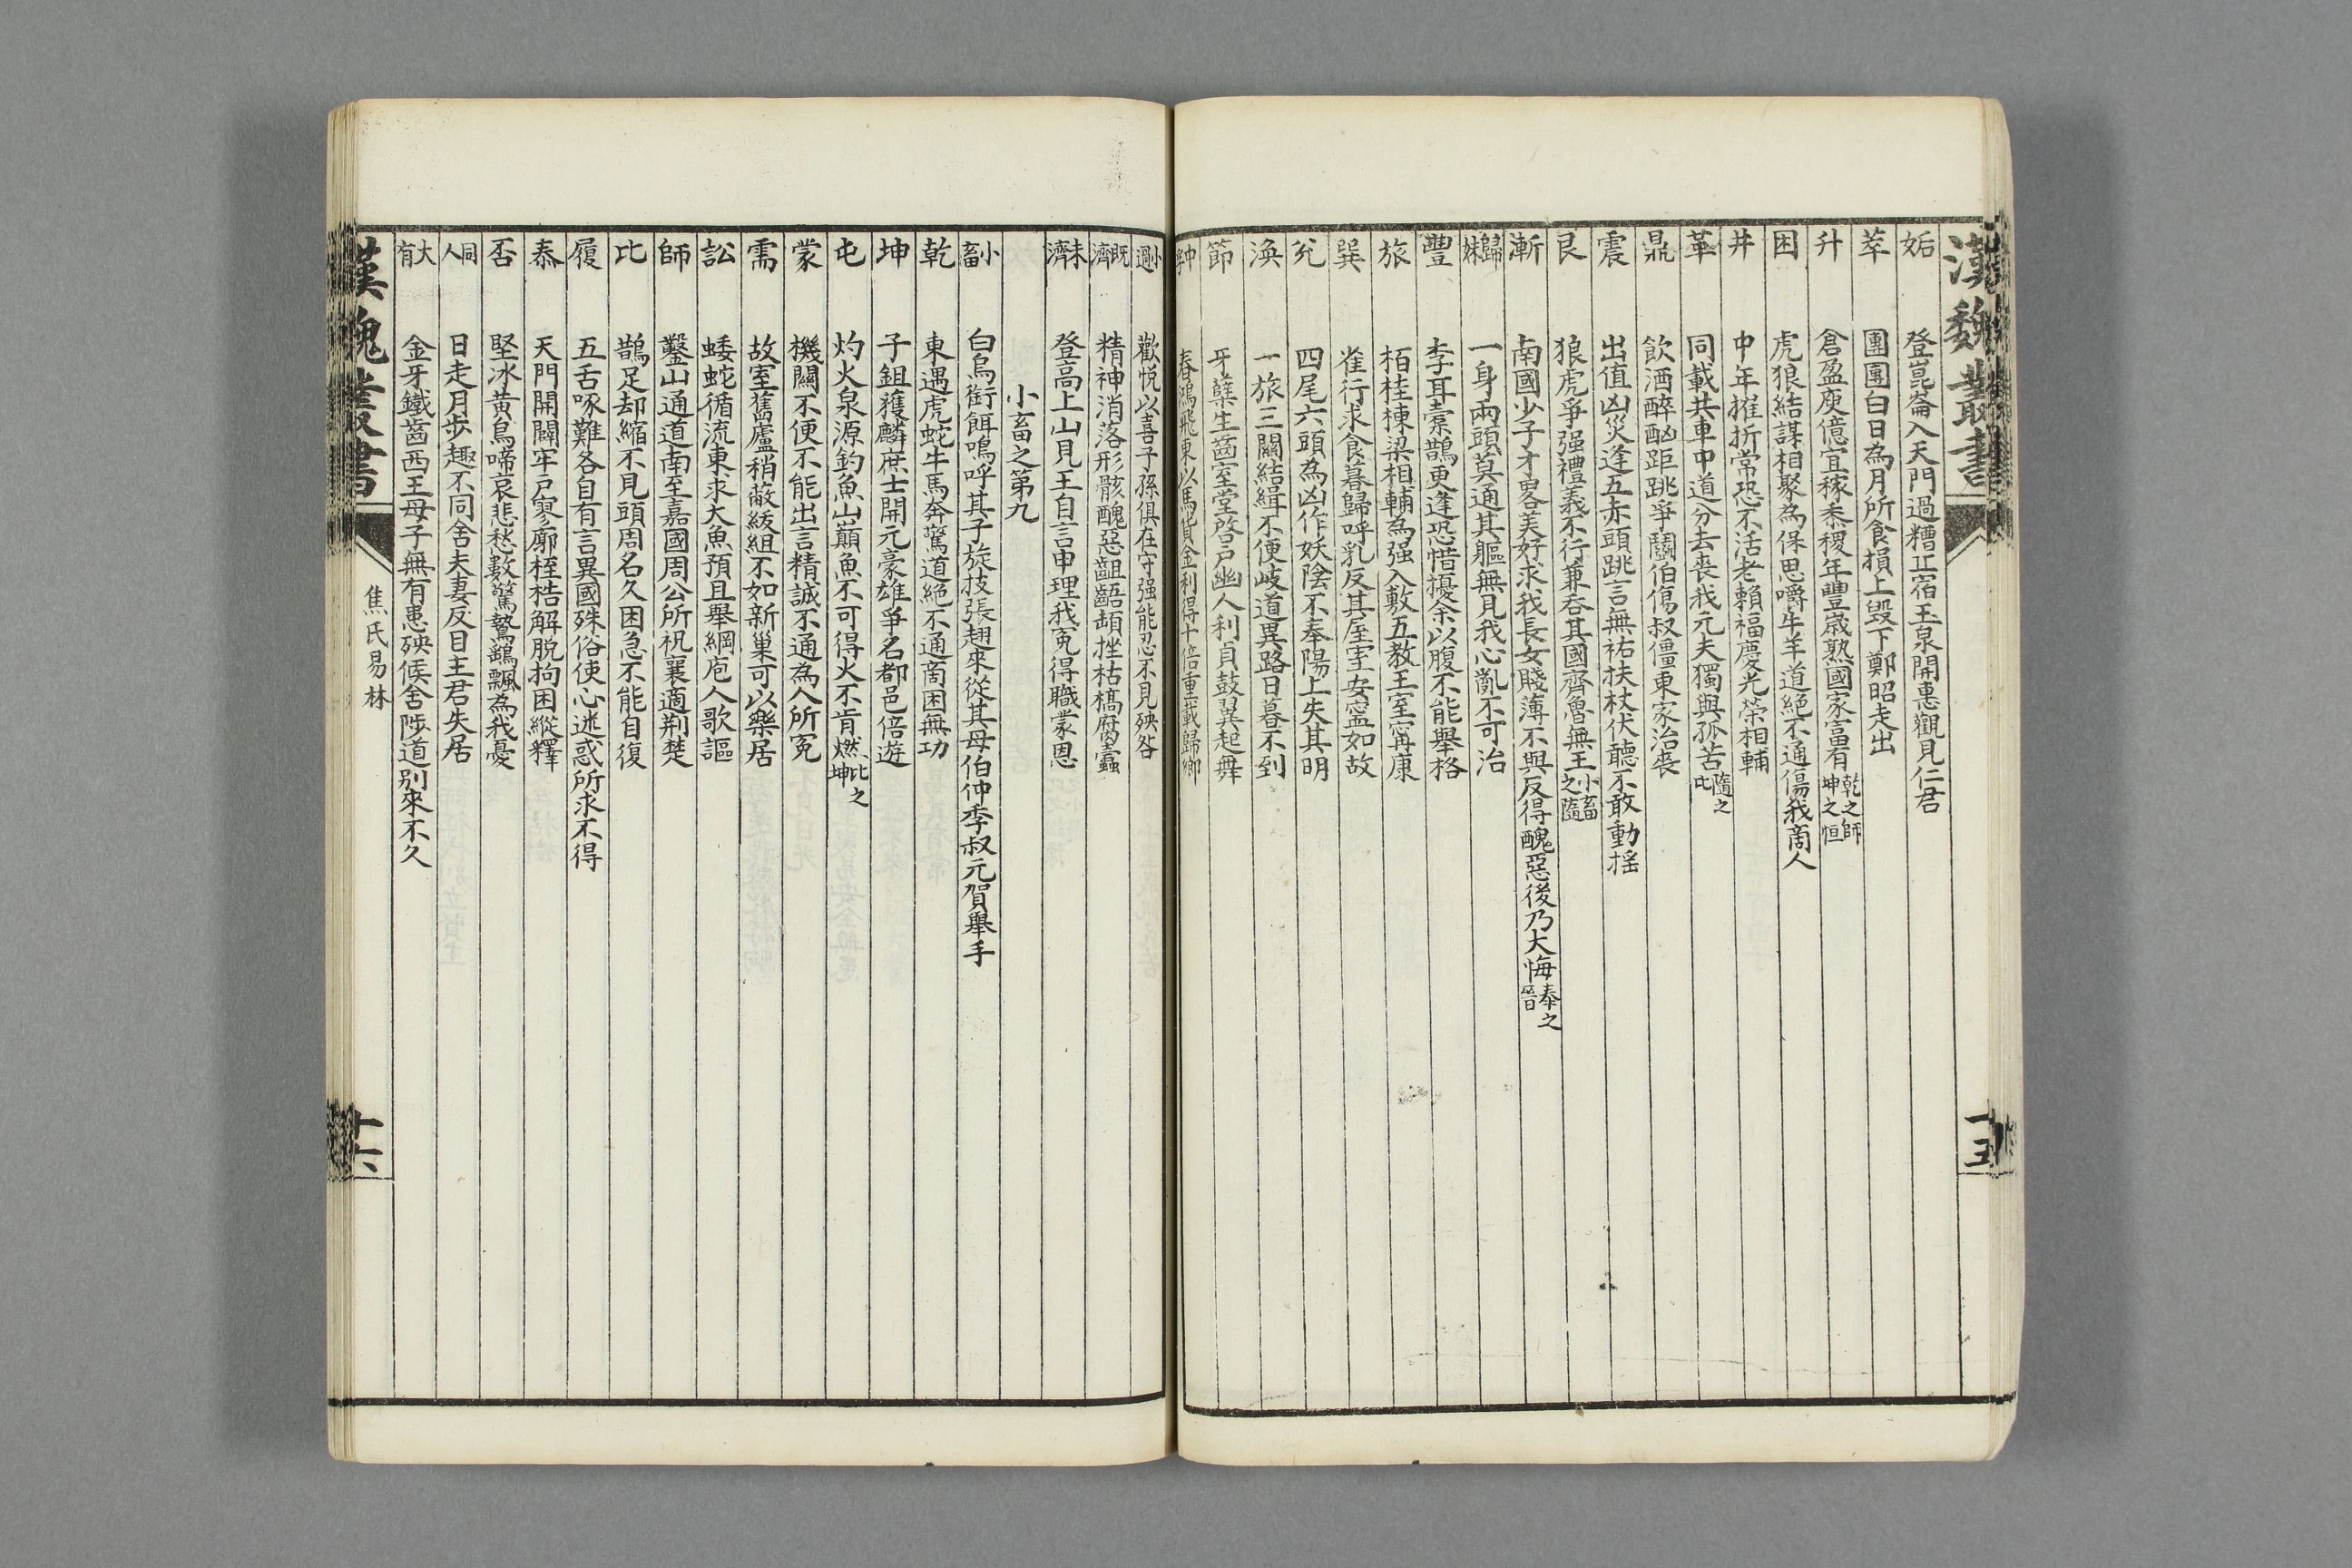 漢魏叢書
十五
姤 登崑崙入天門過糟丘宿玉泉開惠觀見仁君
萃 團團白日為月所食損上毀下鄭昭走出
升 倉盈庾億宜稼黍稷年豐歲熟國家富有乾之師坤之恒
困 虎狼結謀相聚為保思嚼牛羊道絕不通傷我商人
井 中年摧折常恐不活老賴福慶光榮相輔
革 同載共車中道分去喪我元夫獨與孤苦隨之屯
鼎 飲酒醉酗距跳爭鬭伯傷叔僵東家治喪
震 出值凶災逢五赤頭跳言無祐扶杖伏聽不敢動搖
艮 狼虎爭强禮義不行兼吞其國齊魯無王小畜之隨
漸 南國少子才畧美好求我長女賤薄不與反得醜惡後乃大悔泰之晉
歸妹 一身兩頭莫通其軀無見我心亂不可治
豐 李耳彚鵲更逢恐惜擾余以腹不能舉格
旅 栢桂棟梁相輔為强入敷五教王室寗康
巽 雀行求食暮歸呼乳反其屋室安寧如故
兌 四尾六頭為凶作妖陰不奉陽上失其明
渙 一旅三關結緝不便岐道異路日暮不到
節 牙孽生齒室堂啓戶幽人利貞鼓翼起舞
中孚 春鴻飛東以馬貨金利得十倍重載歸鄉
小過 歡悅以喜子孫俱在守强能忍不見殃咎
既濟 精神消落形骸醜惡齟齬頓挫枯槁腐蠹
未濟 登高上山見王自言申理我寃得職蒙恩
小畜之第九
小畜 白烏銜餌鳴呼其子旋枝張翅來從其母伯仲季叔元賀舉手
乾 東遇虎蛇牛馬奔驚道絕不通商困無功
坤 子鉏獲麟庶士開元豪雄爭名都邑倍遊
屯 灼火泉源釣魚山巔魚不可得火不肯燃比之坤
蒙 機關不便不能出言精誠不通為人所寃
需 故室舊廬稍蔽紱組不如新巢可以樂居
訟 蝼蛇循流東求大魚預且舉網庖人歌謳
師 鑿山通道南至嘉國周公所祝襄適荆楚
比 鵲足却縮不見頭周名久困急不能自復
履 五舌啄難各自有言異國殊俗使心迷惑所求不得
泰 天門開闢牢戶寥廓桎梏解脫拘困縱釋
否 堅冰黃鳥啼哀悲愁數驚鷙鷂飄為我憂
同人 日走月步趣不同舍夫妻反目主君失居
大有 金牙鐵齒西王母子無有患殃候舍陟道別來不久
漢魏叢書
焦氏易林
十六